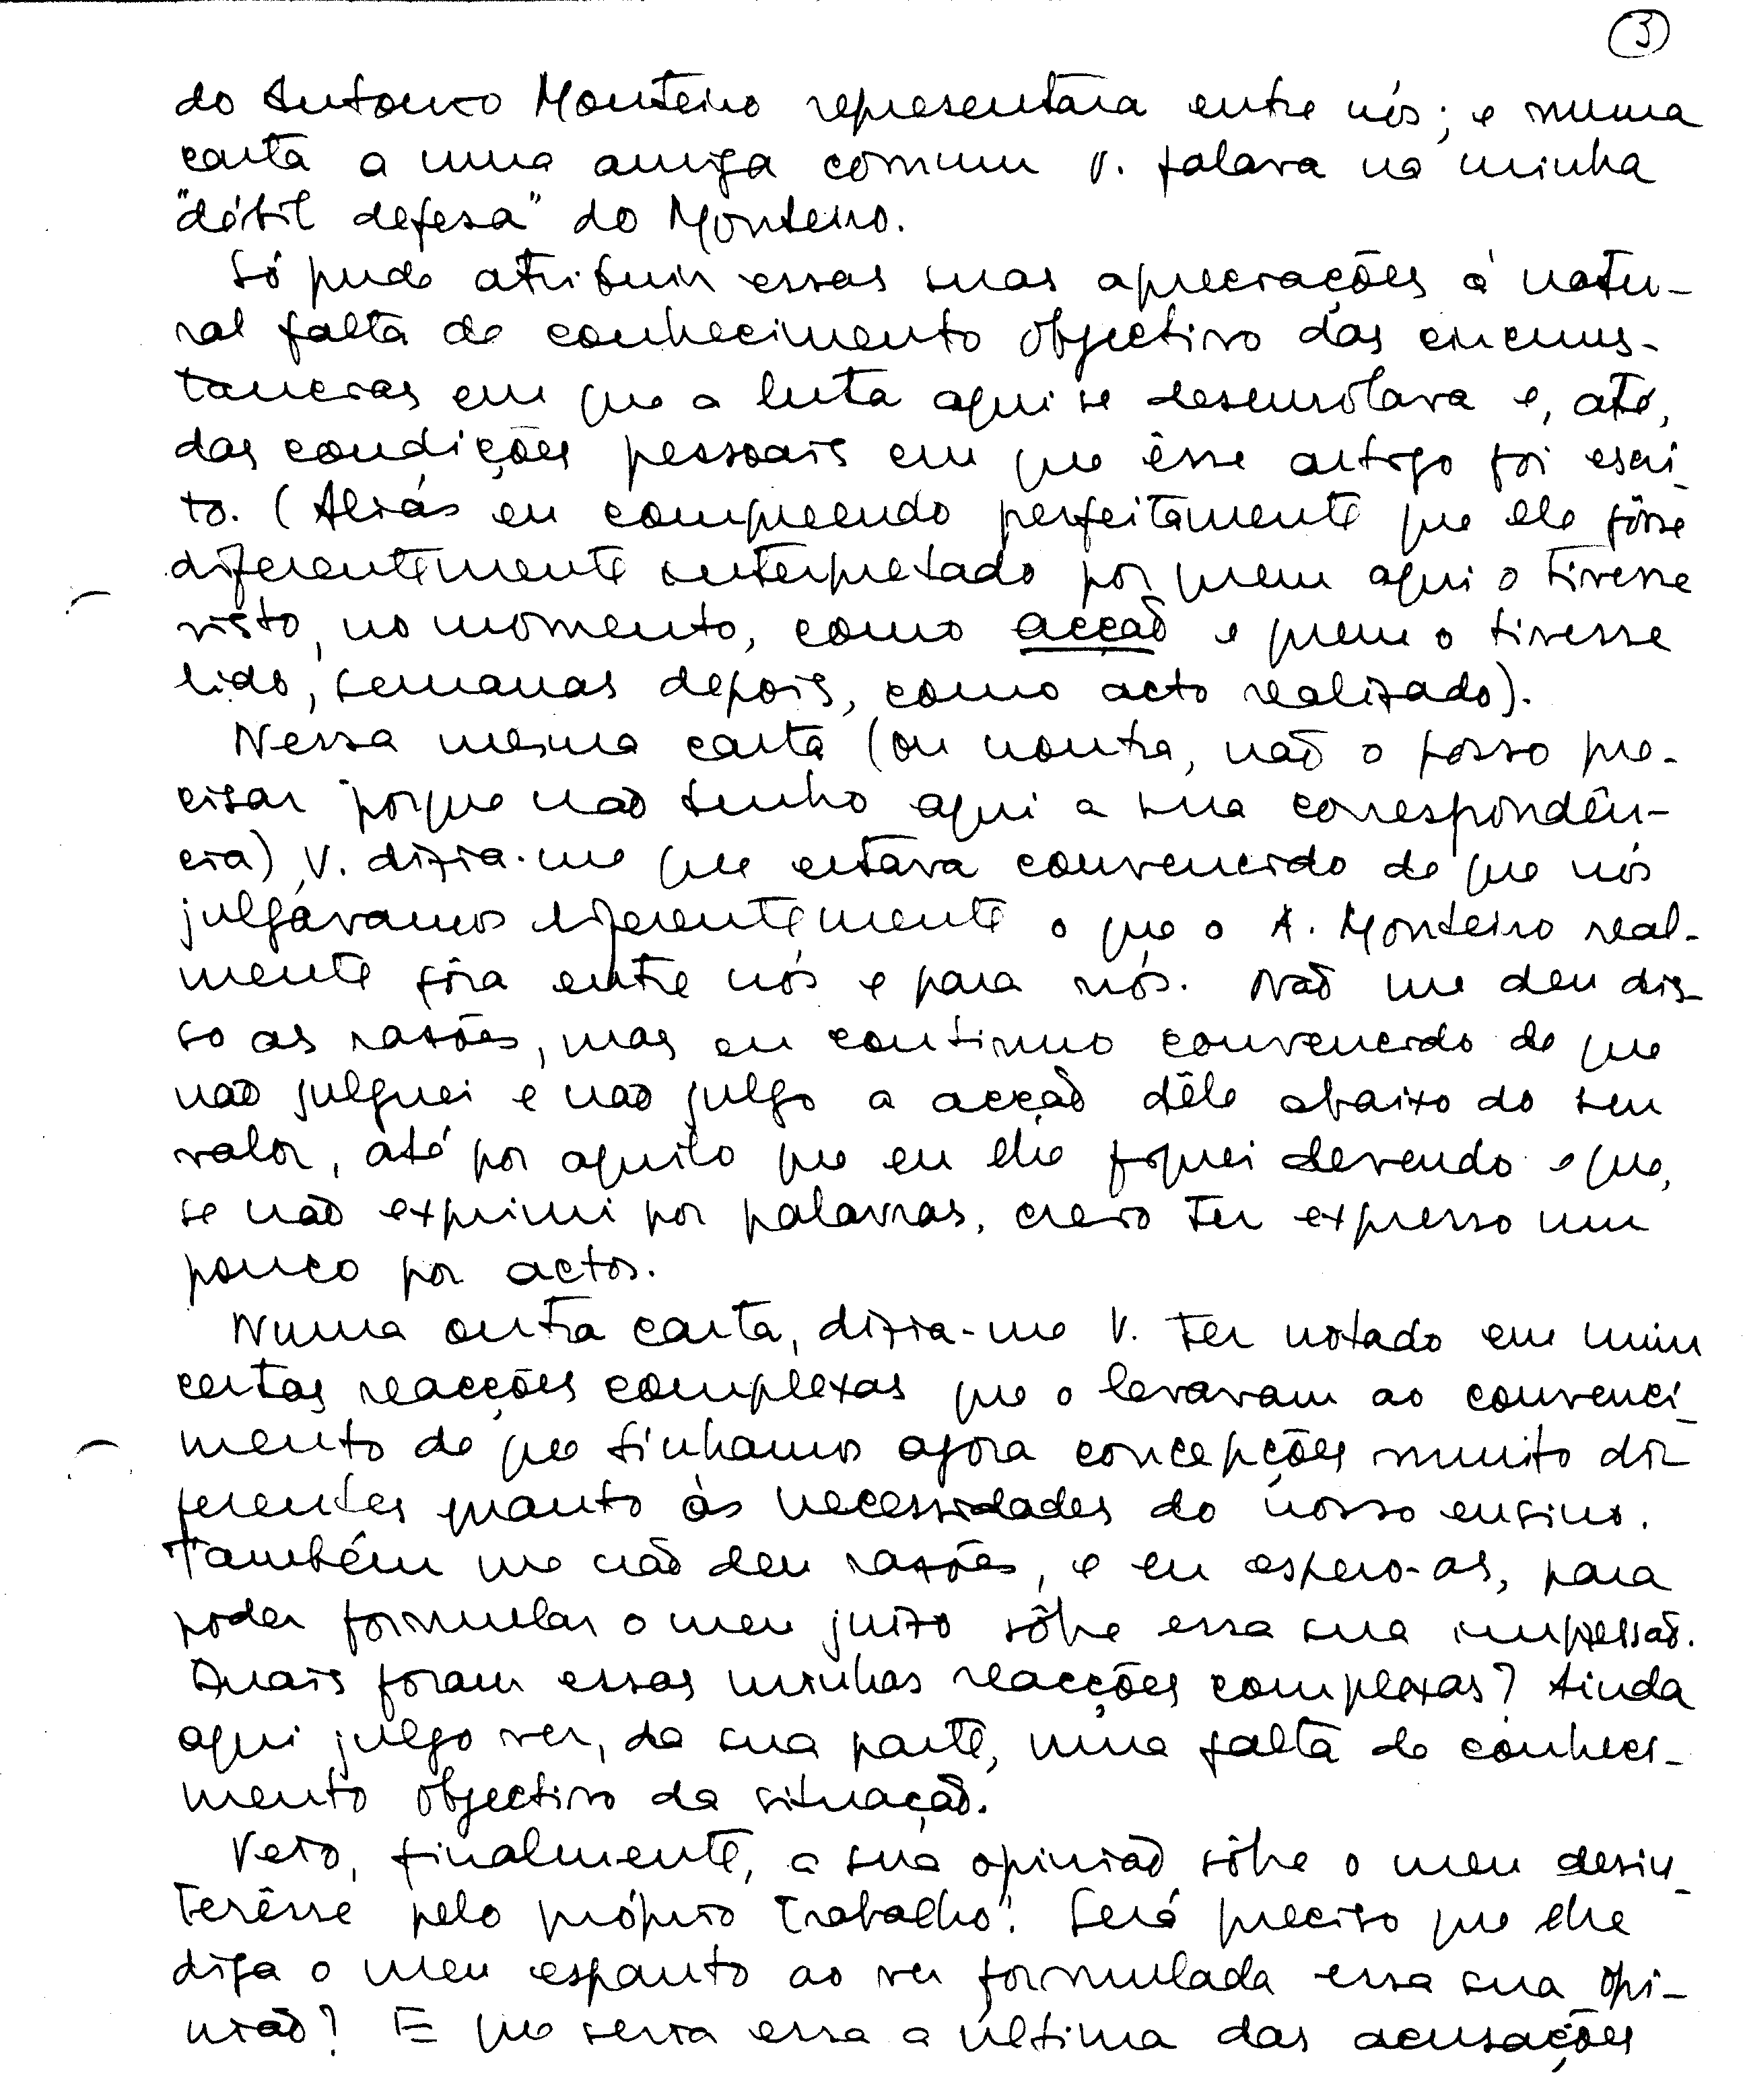 3
do Antonio Monteiro representara entre nós; e numa
carta a uma amiga comum V. falava na minha
"débil defesa" do Monteiro.
Só pude atribuir essas suas apreciações à natu-
ral falta de conhecimento objectivo das circuns-
tancias em que a luta aqui se desenrolava e, até,
das condições pessoais em que êsse artigo foi escri-
to. (Aliás eu compreendo perfeitamente que ele fôsse
diferentemente interpretado por quem aqui o tivesse
visto, no momento, como acção e quem o tivesse
lido, semanas depois, como acto realizado).
Nessa mesma carta (ou noutra, não o posso pre-
cisar porque não tenho aqui a sua correspondên-
cia) V. dizia-me que estava convencido de que nós
julgávamos diferentemente o que o A. Monteiro real-
mente fôra entre nós e para nós. Não me deu dis-
so as razões, mas eu continuo convencido de que
não julguei e não julgo a acção dêle abaixo do seu
valor, até por aquilo que eu lhe fiquei devendo e que,
se não exprimi por palavras, creio ter expresso um
pouco por actos.
Numa outra carta, dizia-me V. ter notado em mim
certas reacções complexas que o levavam ao convenci-
mento de que tinhamos agora concepções muito di-
ferentes quanto às necessidades do nosso ensino.
Também me não deu razões, e eu espero-as, para
poder formular o meu juizo sôbre essa sua impressão.
Quais foram essas minhas reacções complexas? Ainda
aqui julgo ver, da sua parte, uma falta de conheci-
mento objectivo da situação.
Vejo, finalmente, a sua opinião sôbre o meu desin-
terêsse pelo próprio trabalho! Será preciso que lhe
diga o meu espanto ao ver formulada essa sua opi-
nião? E que seria essa a última das acusações